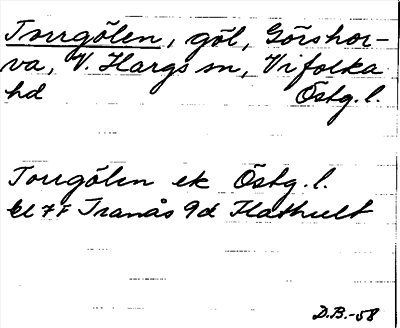 Torrgölen, göl, Görshor-
va, V. Hargs sn, Vifolka
hd Östg. l.
Torrgölen ek Östg. l.
bl 7F Tranås 9d Flathult
D.B.-58